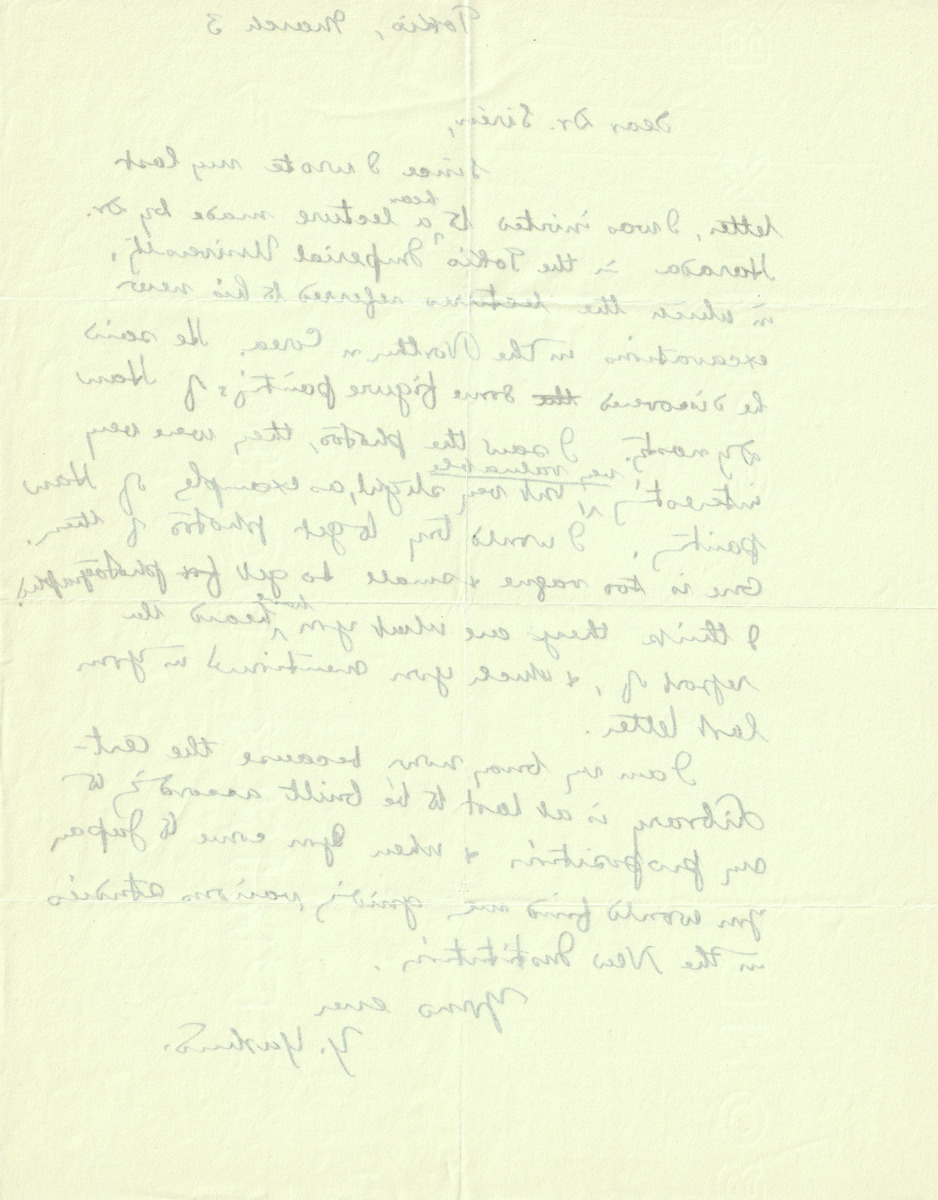 Tokio, March 3
Dear Dr. Sirén,
Since I wrote my last
letter, I was invited to hear a lecture made by Dr.
Harada in the Tokio Imperial University,
in which the lectures referred to his new
excavations in the Northern Corea. He said
he discovered the some figure paintings of Han
Dynasty. I saw the photos, they were very
interesting, very valuable but very slight, as example of Han
painting. I would try to get photos of them.
One is too vague & small to get for photographs.
I think they are what you had heard the
report of, & which you mentioned in your
last letter.
I am very busy now because the Art-
Library is at last to be built according to
my proposition & when you come to Japan
you would find me guiding various studies
in the New Institution.
Yours ever
Y. Yashiro.